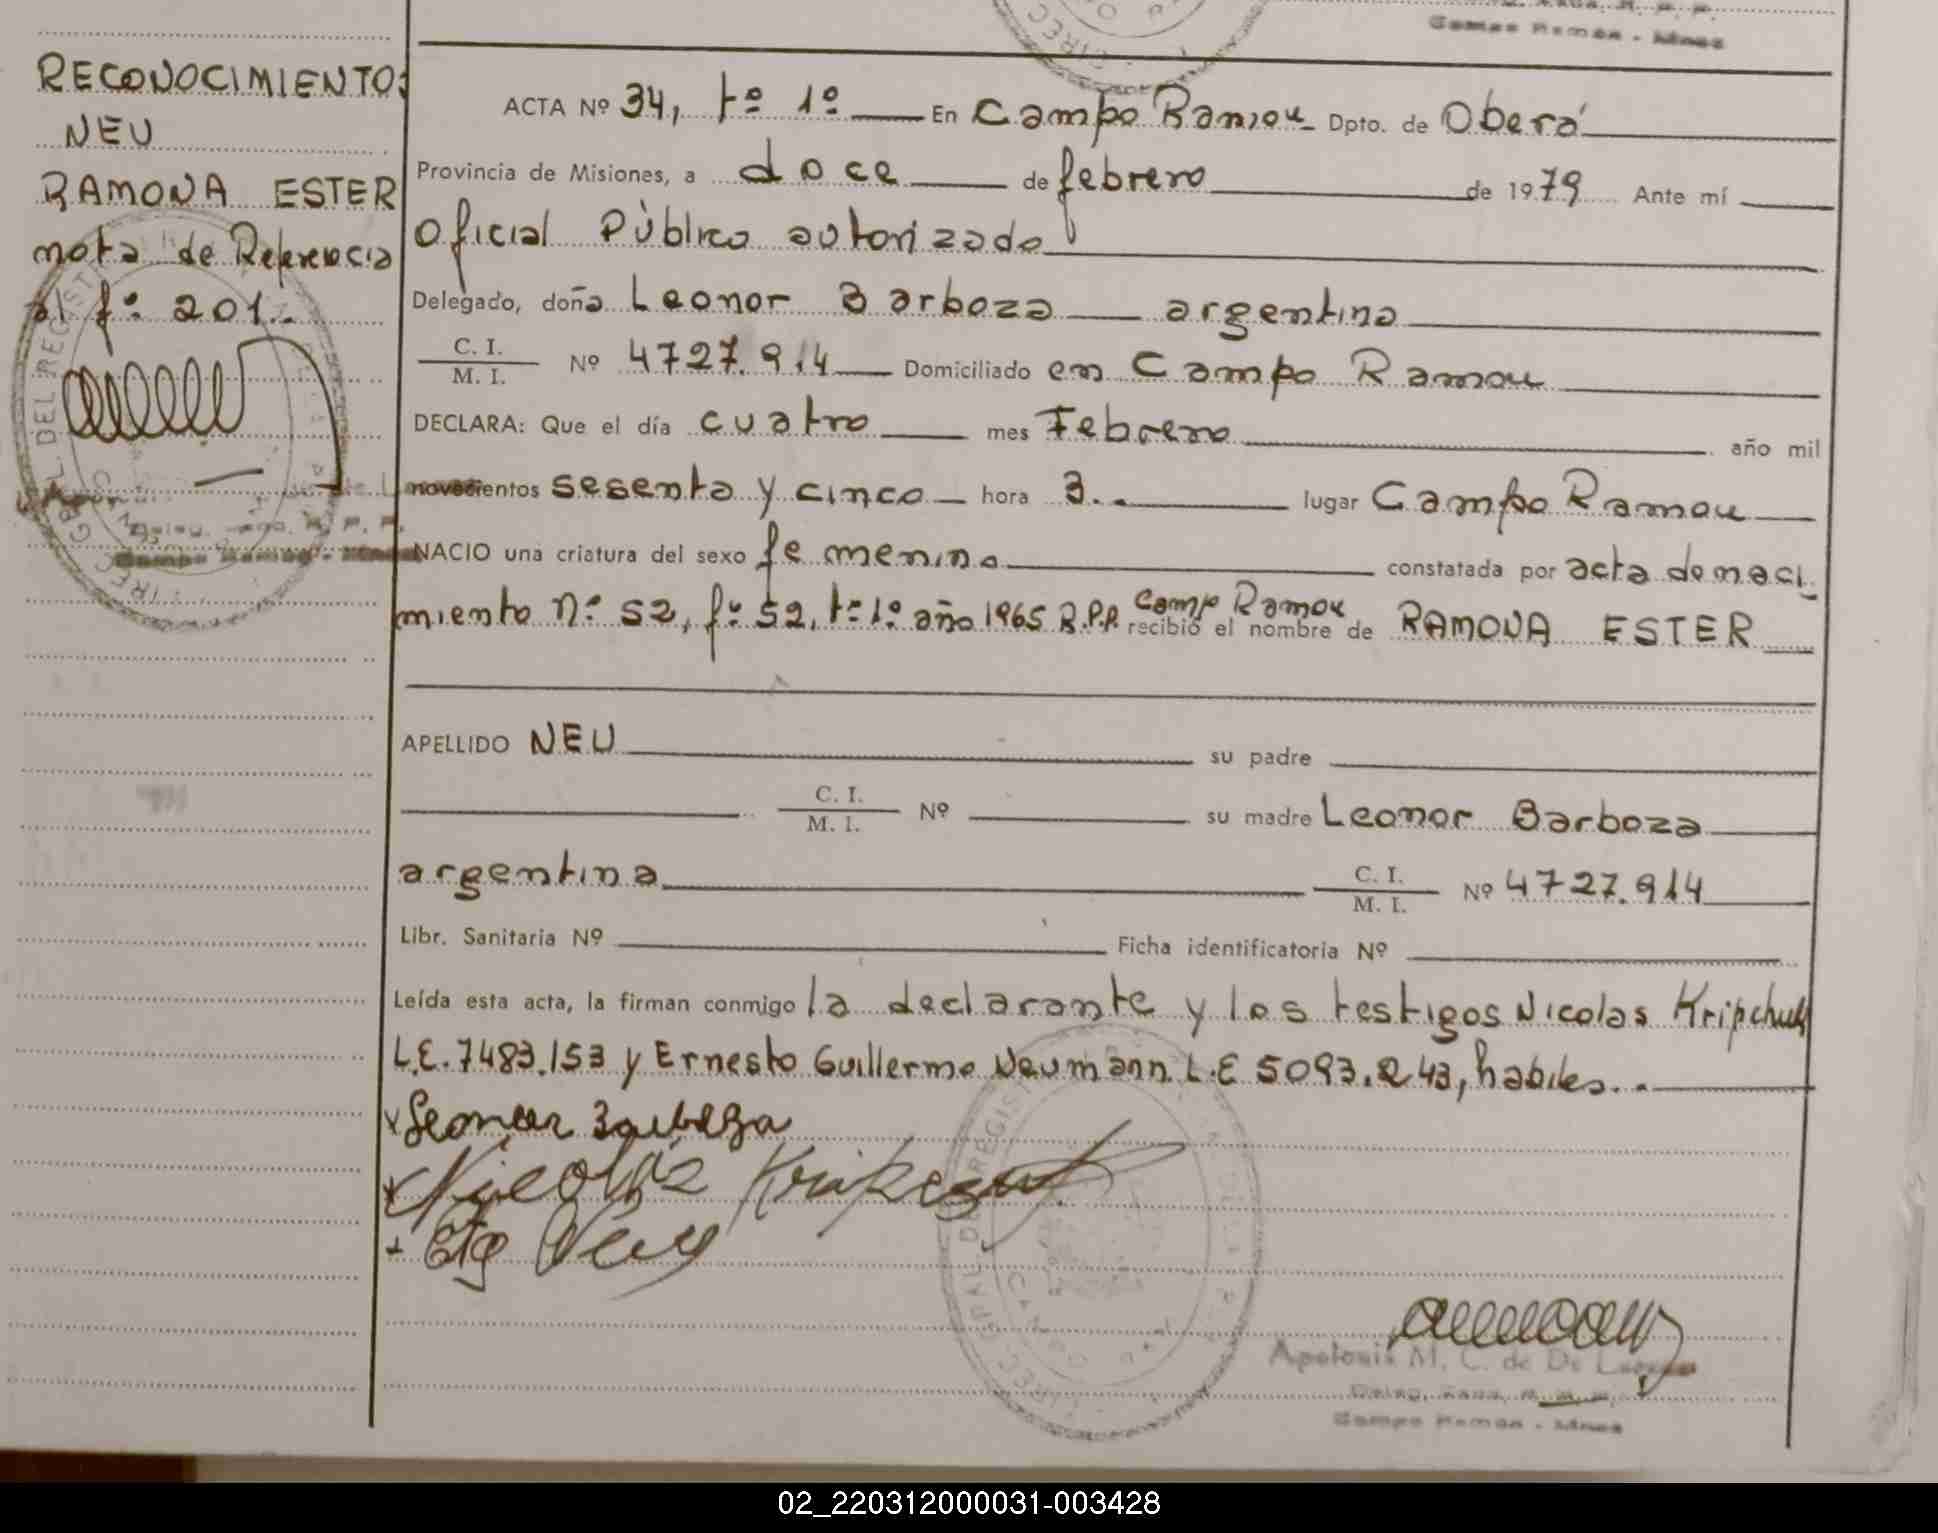 Campo Ramón - Mnes
RECONOCIMIENTO:
NEU
RAMONA ESTER
nota de Referencia
al fº 201.-
ACTA Nº 34, tº 1º En Campo Ramon Dpto. de Oberá
Provincia de Misiones, a doce de febrero de 1979 Ante mí
Oficial Público autorizado
Delegado, doña Leonor Barboza argentina
C. I.
M. I. Nº 4727.914 Domiciliado en Campo Ramon
DECLARA: Que el día cuatro mes Febrero año mil
novecientos sesenta y cinco hora 3.- lugar Campo Ramon
NACIO una criatura del sexo femenino constatada por acta de naci
miento nº 52, fº 52, tº 1º año 1965 R.P.P. Campo Ramon recibió el nombre de RAMONA ESTER
APELLIDO NEU su padre
C. I.
M. I. Nº su madre Leonor Barboza
argentina C. I.
M. I. Nº 4727.914
Libr. Sanitaria Nº Ficha identificatoria Nº
Leída esta acta, la firman conmigo la declarante y los testigos Nicolas Kripchuk
L.E. 7483.153 y Ernesto Guillermo Neumann L.E 5093.243, habiles.-
Leonor Barboza
Nicolás
Apolonia M. C. de De
Campo Ramón - Mnes
02_220312000031-003428